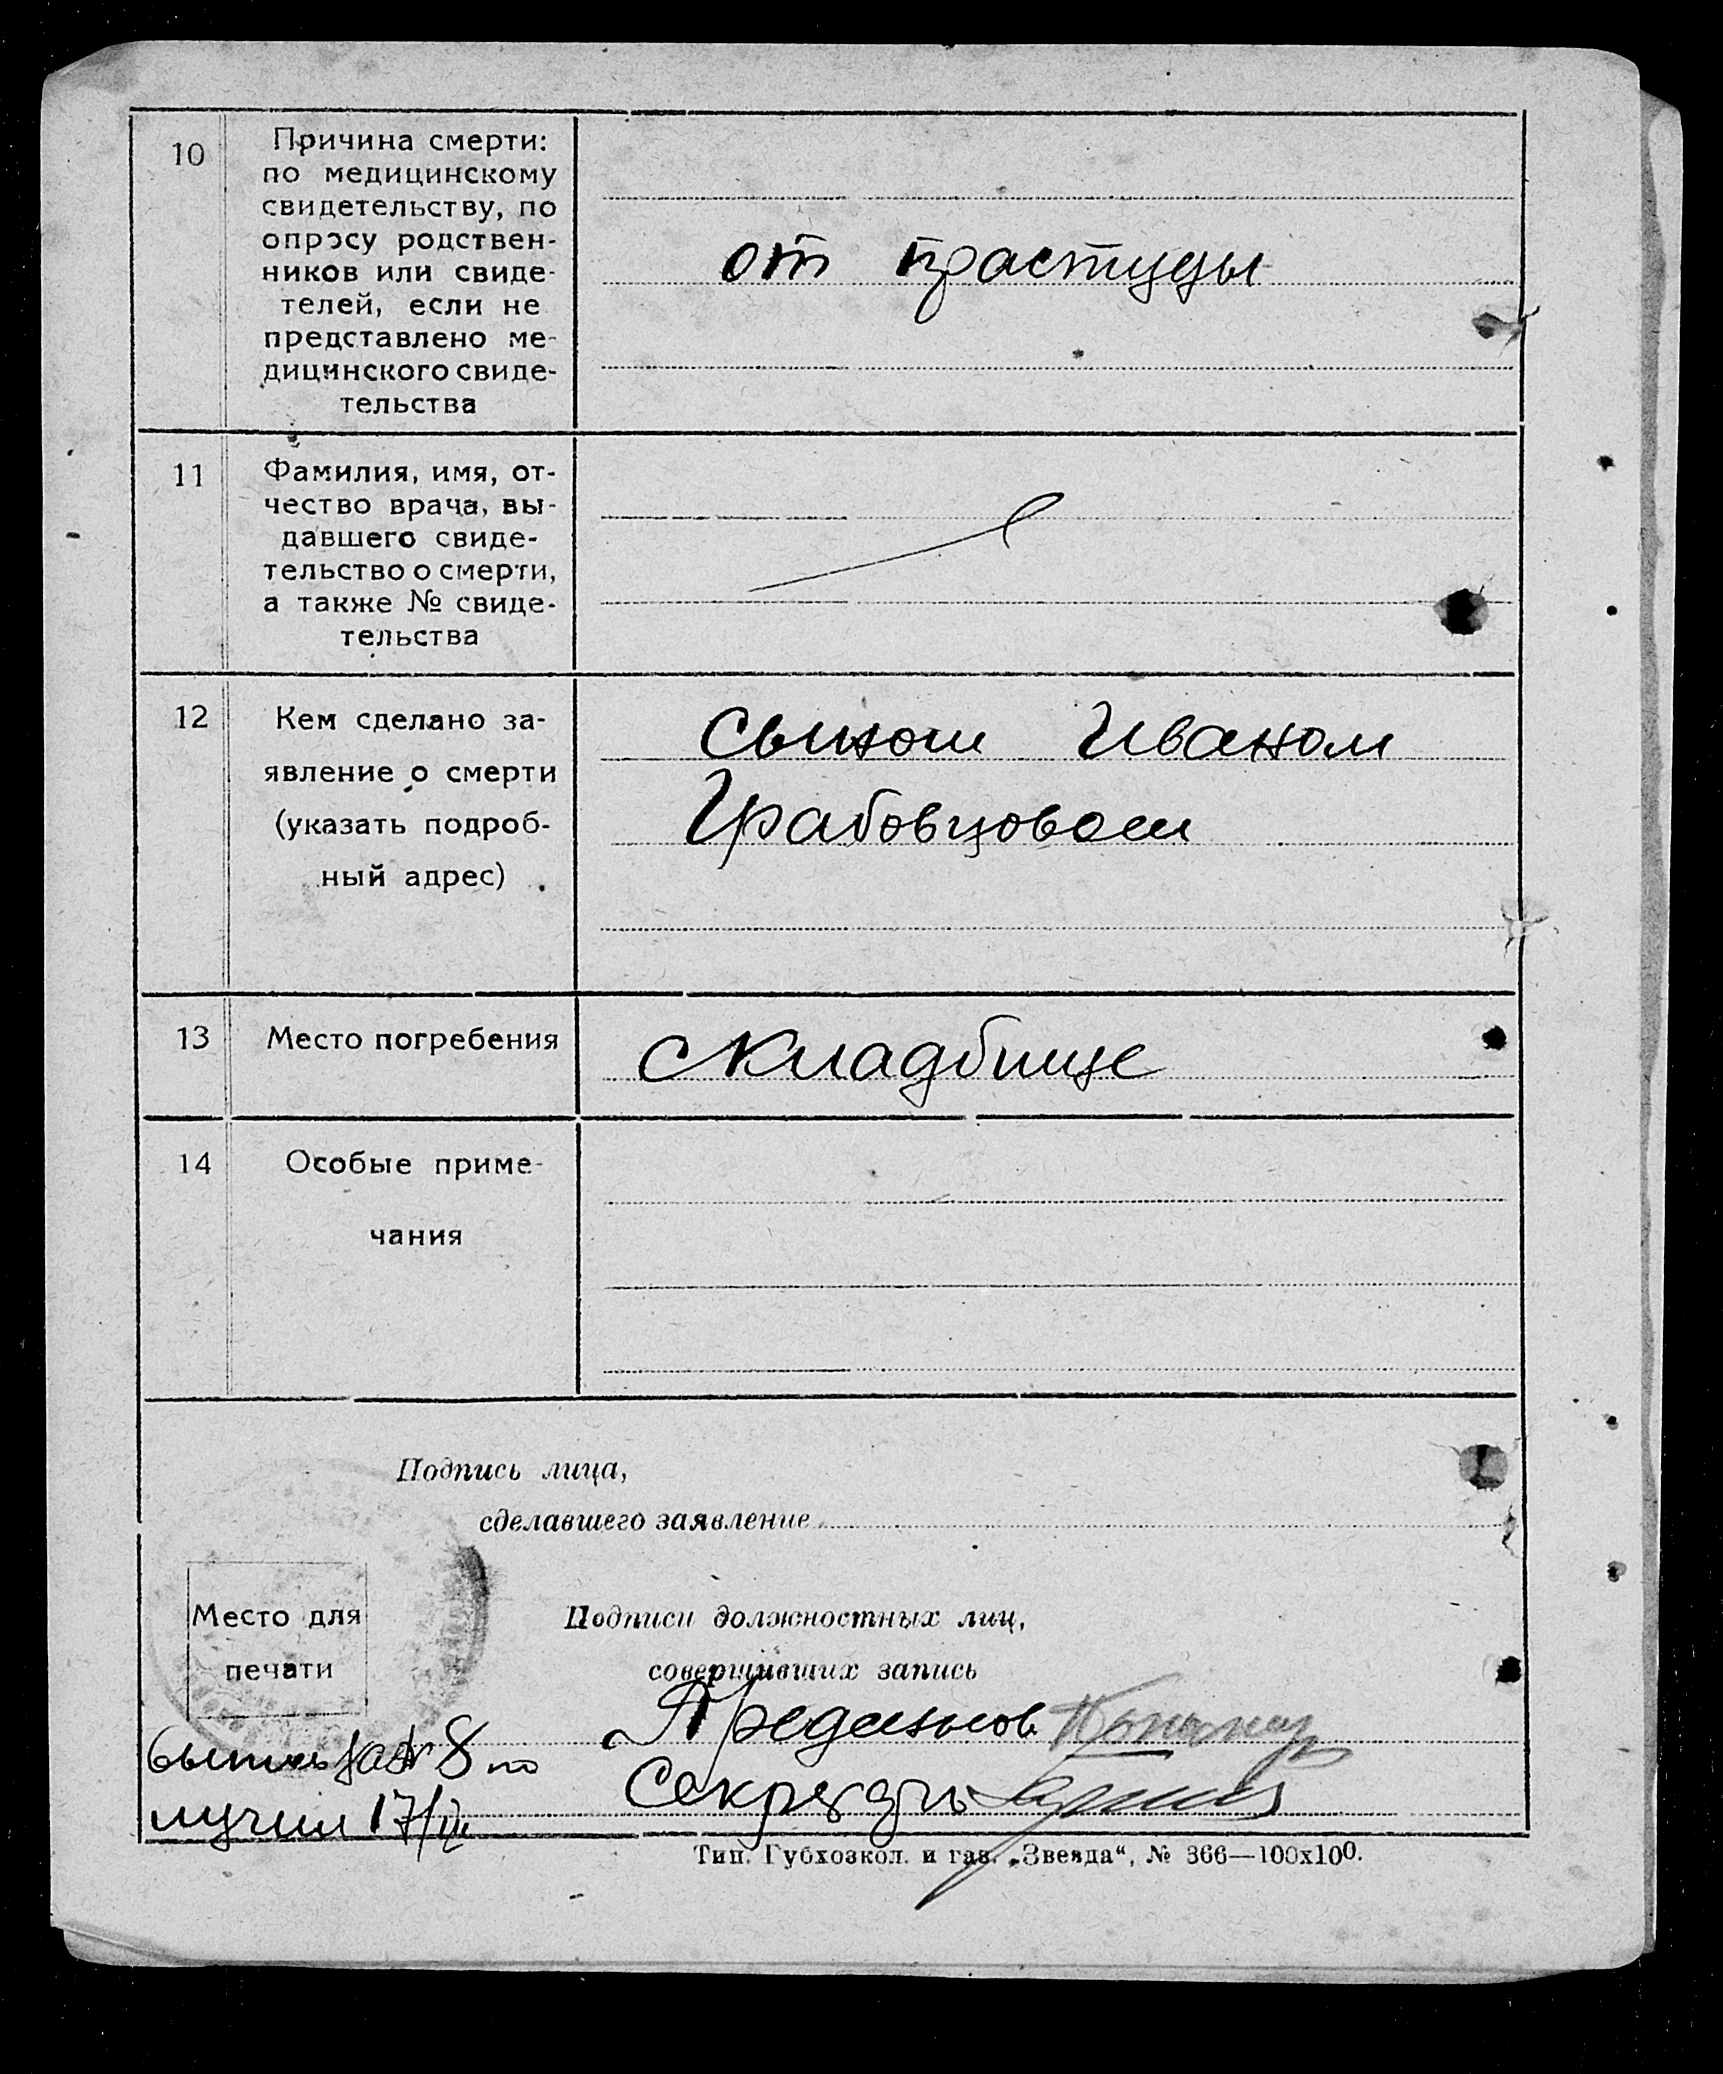 10
Причина смерти:
по медицинскому
свидетельству, по
опросу родствен-
ников или свиде-
телей, если не
представлено ме-
дицинского свиде-
тельства
от прастуды
11
Фамилия, имя, от-
чество врача, вы-
давшего свиде-
тельство о смерти,
а также № свиде-
тельства
12
Кем сделано за-
явление о смерти
(указать подроб-
ный адрес)
Сыном Иваном
Грабовцовом
13
Место погребения
Складбище
14
Особые приме-
чания
Подпись лица,
сделавшего заявление
Место для
печати
Подписи должностных лиц,
совершивших запись
8 по
лучил 17/IV
Тип. Губхозкол. и газ. „Звезда“, № 366—100х100.